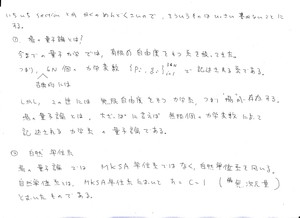 いちいち して のめんどくさいので、そういうものはいっさい書かないことに
する。
① 場の量子論とは!
今までの量子力学では、有限の自由度をもつ系を扱ってきた。
つまり、 個の力学変数 で記述される系である。
具体的には
しかし、この世には無限自由度をもつ力学系、つまり"場"が存在する。
場の量子論とは、大ざっぱに言えば無限個の力学変数によって
記述される力学系の量子論である。
② 自然単位系
場の量子論ではMKSA単位系ではなく、自然単位系を用いる。
自然単位系とは、MKSA単位系において ħ = C = 1 (無次元量)
とおいたものである。